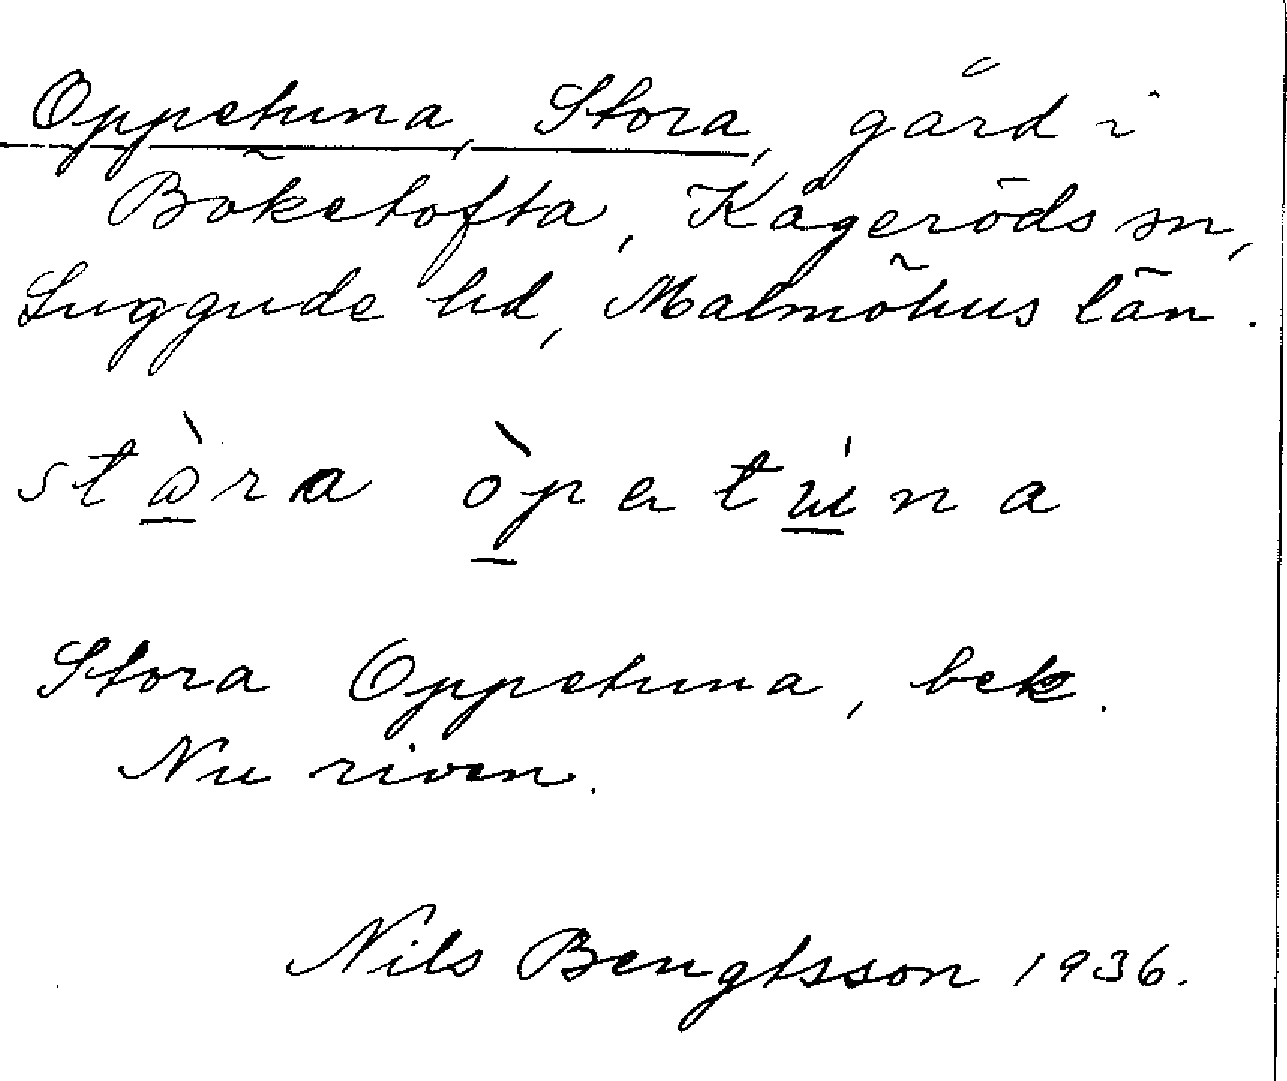 Oppetuna, Stora, gård i
Böketofta, Kågeröds sn,
Luggude hd, Malmöhus län.
stàra òpatúna
Stora Oppetuna, bek.
Nu riven.
Nils Bengtsson 1936.